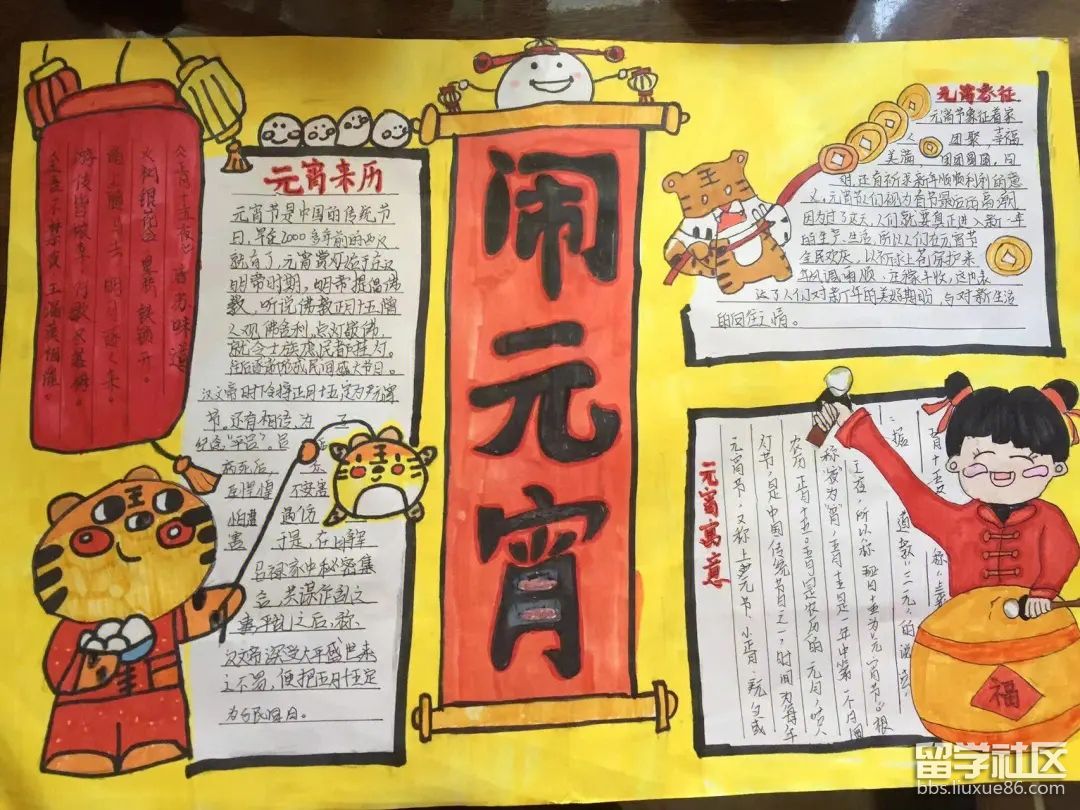 闹元宵
元宵来历
元宵节是中国的传统节
日,早在2000多年前的西汉
就有了,元宵赏灯始于东汉
明帝时期,明帝提倡佛
教,听说佛教正月十五僧
人观佛舍利,点灯敬佛,
就令士族庶民都挂灯。
往后逐渐形成民间盛大节日。
汉文帝时下令将正月十五定为元宵
节。还有相语为
纪念"平吕"。吕
病死后,
不安害
怕遭 遇伤
害 于是,在
吕禄家中秘密集
合,共谋作乱之
事,平乱之后,
汉文帝深感太平盛世来
之不易,便把正月十五定
为与民同日。
元宵象征
元宵节象征着家
人 团聚,幸福
美满 团团圆圆,同
时,还有祈求新年顺顺利利的意
义,元宵节人们视为春节最后的高潮
因为过了这天,人们就要真正进入新一年
的生产、生活,所以人们在元宵节
全民欢庆,以祈求上苍保护来
年风调雨顺,庄稼丰收,这也表
达了人们对新年的美好期盼,与对新生活
的向往之情。
元宵寓意
元宵节,又称上元节、小正月、元夕或
灯节,是中国传统节日之一,时间为每年
农历正月十五。正月是农历的元月,古人
称"夜"为"宵",正月十五是一年中第一个月圆
之夜,所以称正月十五为"元宵节"。根
据 道教"三元"的说法,
正月十五 称"上
火树银花合 星桥铁锁开。
游伎皆秾李 行歌尽落梅。
金吾不禁夜 玉漏莫相催。
福
留学社区
bbs.liuxue86.com